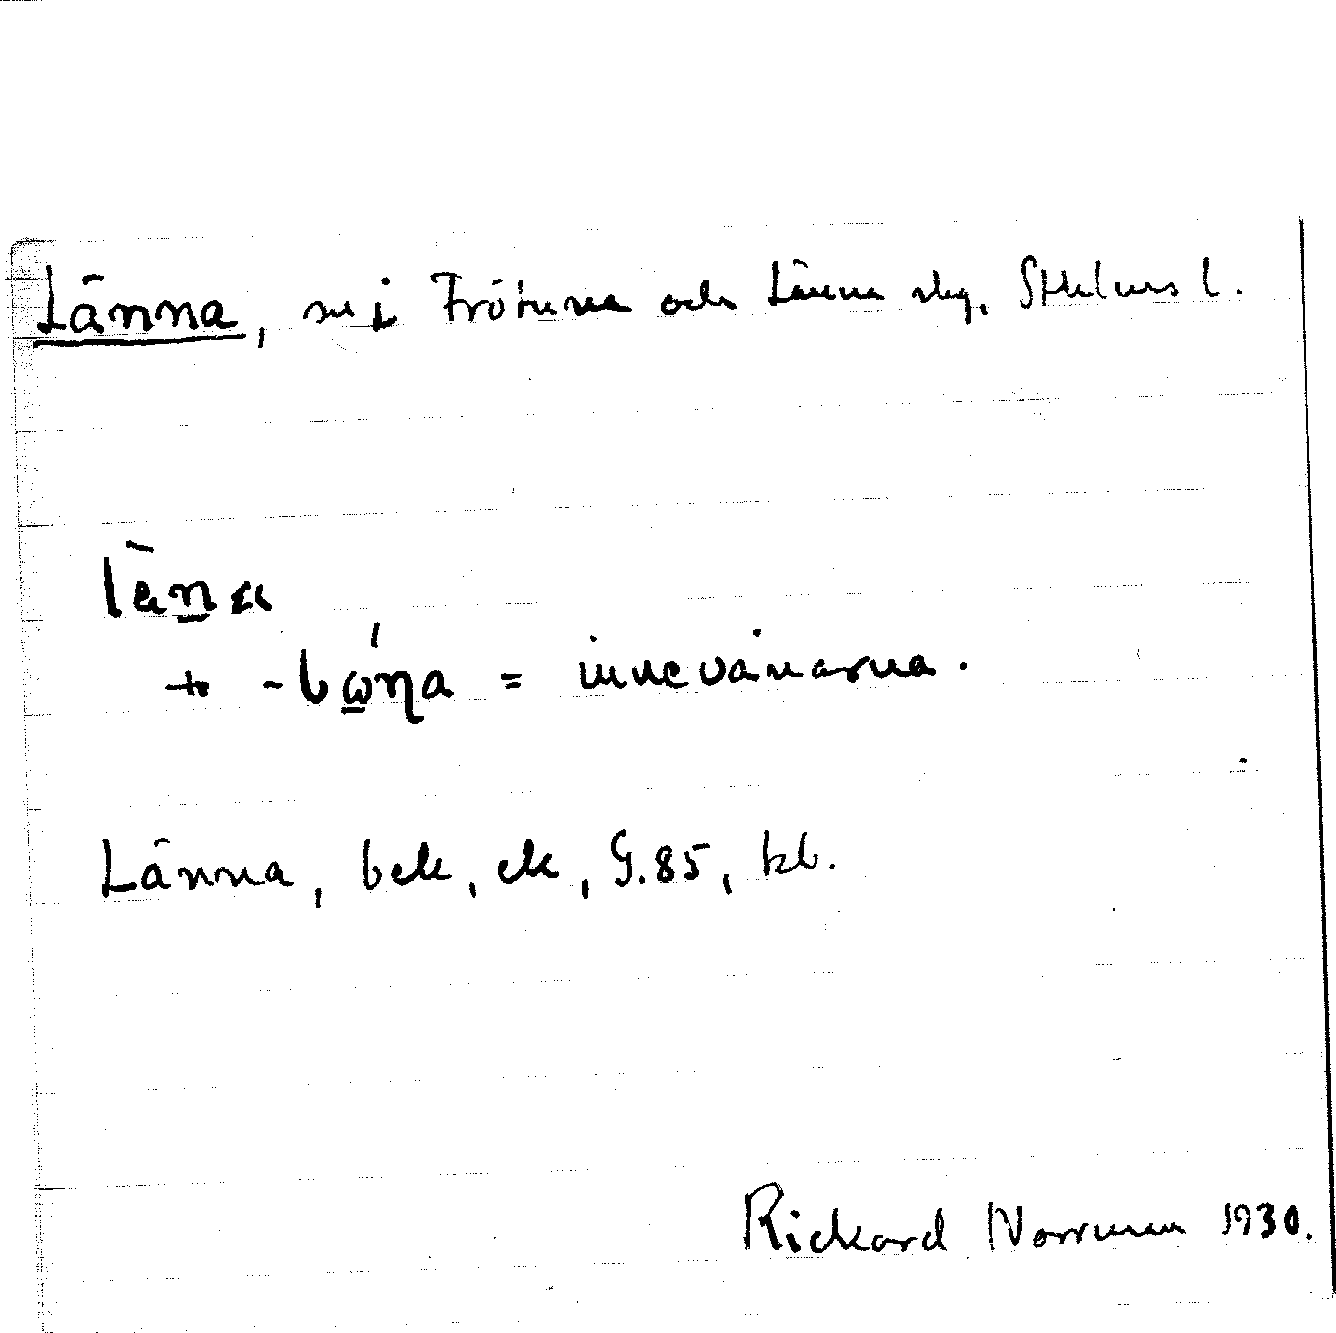 Länna, sn i Frötuna och Länna skg, Sthlms l.
lä̀na
+ -bώ̲ηa = innevånarna.
Länna, bek, ek, G.85, kb.
Rickard Norrman 1930.